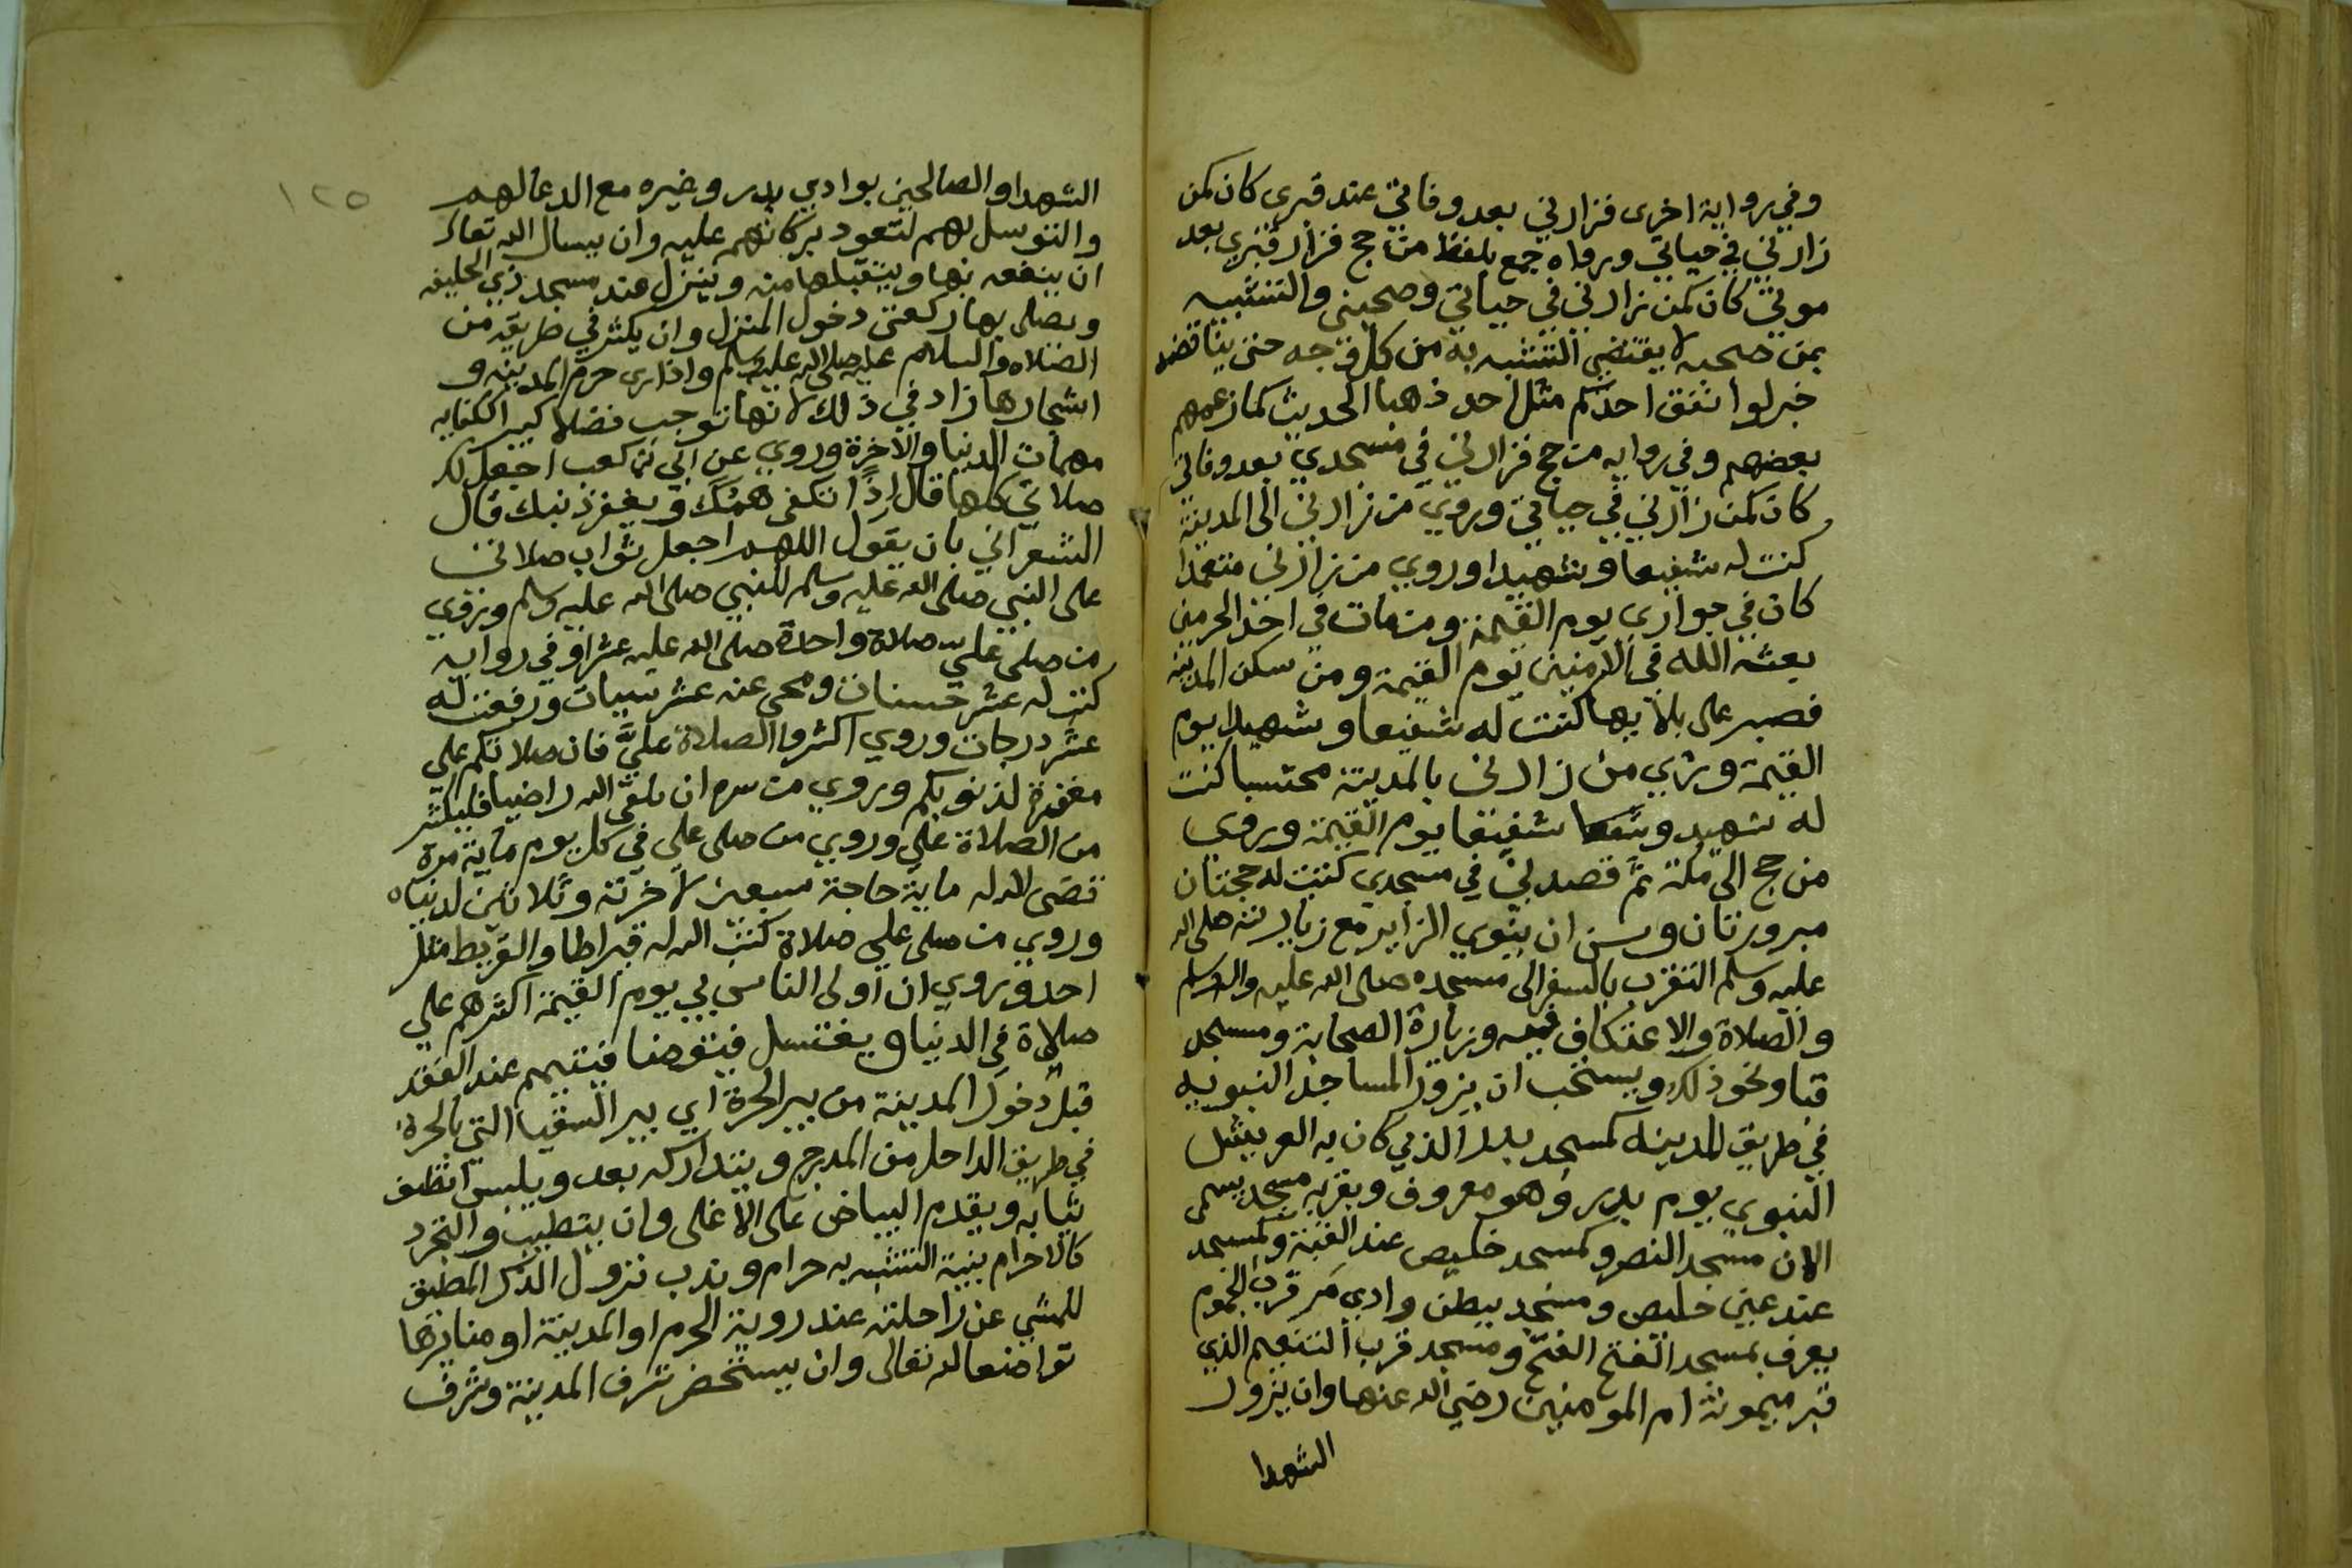 وفي رواية اخرى فزارني بعد وفاتي عند قبري كان كمن
زارني في حياتي ورواه جمع بلفظ من حج فزار قبري بعد
موتي كان كمن زارني في حياتي وصحبني والتشبيه
بمن صحبه لا يقتضي التشبه به من كل وجه حتى يناقضه
خبر لو انفق احدكم مثل احد ذهبا الحديث كما زعمهم
بعضهم وفي روايه من حج فزارني في مسجدي بعد وفاتي
كان كمن زارني في حياتي وروي من زارني الى المدينة
كنت له شفيعا وشهيدا وروي من زارني متعمدا
كان في جواري يوم القيمة ومن مات في احد الحرمين
بعثه الله في الآمنين يوم القيمة ومن سكن المدينه
فصبر على بلايها كنت له شفيعا وشهيدا يوم
القيمة وروي من زارني بالمدينة محتسبا كنت
له شهيد شفيعا يوم القيمة وروى
من حج الى مكة ثم قصدني في مسجدي كتبت له حجتان
مبرورتان وسن ان ينوي الزاير مع زيارته صلى الله
عليه وسلم التقرب بالسفر الى مسجده صلى الله عليه واله وسلم
والصلاة والاعتكاف فيه وزيارة الصحابة ومسجد
قبا ونحو ذلك ويستحب ان يزور المساجد النبويه
في طريق المدينه كمسجد بدر الذي كان به العريش
النبوي يوم بدر وهو معروف وبقربه مسجد يسمى
الان مسجد النصر وكمسجد خليص عند العقبة وكمسجد
عند عين خليص ومسجد ببطن وادي مر قرب الجموم
يعرف بمسجد الفتح الفتح ومسجد قرب التنعيم الذي
قبر ميمونة ام المومنين رضي الله عنها وان يزور
الشهدا
١٢٥
الشهدا والصالحين بوادي بدر وغيره مع الدعا لهم
والتوسل بهم لتعود بركاتهم عليه وان يسال الله تعالى
ان ينفعه بها ويتقبلها منه وينزل عند مسجد ذي الحليفه
ويصلي بها ركعتي دخول المنزل وان يكثر في طريقه من
الصلاه والسلام عليه صلى الله عليه وسلم واذا راى حرم المدينه و
اشجارها زاد في ذلك لانها توجب فضلا كبير الكفايه
مهمات الدنيا والآخرة وروي عن ابي بن كعب اجعل لك
صلاتي كلها قال اذًا تكفى همك ويغفر ذنبك قال
الشعراني بان يقول اللهم اجعل ثواب صلاتى
على النبي صلى الله عليه وسلم للنبي صلى الله عليه وسلم وروي
من صلى علي صلاة واحدة صلى الله عليه عشرا وفي رواية
كتب له عشر حسنات ومحى عنه عشر سيات ورفعت له
عشر درجات وروي اكثروا الصلاة عليَّ فان صلاتكم علي
مغفرة لذنوبكم وروي من سره ان يلقى الله راضيا فليكثر
من الصلاة علي وروي من صلى علي في كل يوم ماية مرة
قضى لله له ماية حاجة سبعين لآخرته وثلاثين لدنياه
وروي من صلى علي صلاة كتب الله له قيراطا والقيراط مثل
احد وروي ان اولى الناس بي يوم القيمة اكثرهم علي
صلاة في الدنيا ويغتسل فيتوضا فيتيمم عند الفقد
قبل دخول المدينة من بير الحرة اي بير السقيا التي بالحرة
في طريق الداخل من المدرج ويتداركه بعد ويلبس انظف
ثيابه ويقدم البياض على الاغلى وان يتطيب والتجرد
كالاحرام بنية التشبه به حرام وندب نزول الذكر المطيق
للمشي عن راحلته عند روية الحرم او المدينة او منايرها
تواضعا لله تعالى وان يستحضر شرف المدينة وشرف